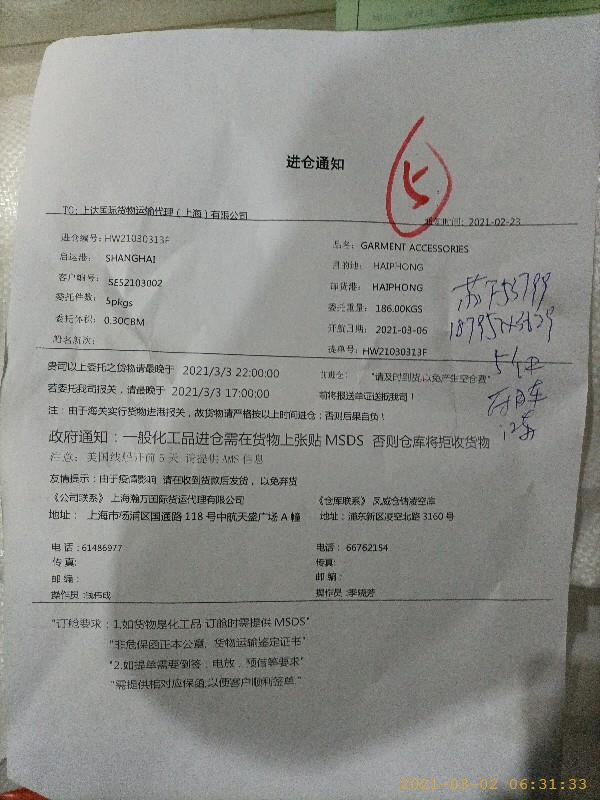 进仓通知
5
TO: 上达国际货物运输代理（上海）有限公司
通知时间: 2021-02-23
进仓编号: HW21030313F
品名: GARMENT ACCESSORIES
启运港: SHANGHAI
目的地: HAIPHONG
客户编号: SES2103002
卸货港: HAIPHONG
委托件数: 5pkgs
委托重量: 186.00KGS
委托体积: 0.30CBM
开航日期: 2021-03-06
船名航次:
提单号: HW21030313F
5件
贵司以上委托之货物请最晚于 2021/3/3 22:00:00
"请及时到货,以免产生空仓费"
若委托我司报关，请最晚于 2021/3/3 17:00:00
前将报送单证送抵我司！
注：由于海关实行货物进港报关，故货物请严格按以上时间进仓；否则后果自负！
政府通知：一般化工品进仓需在货物上张贴 MSDS 否则仓库将拒收货物
注意：美国线船开前 5 天 请提供 AMS 信息
友情提示：由于疫情影响 请在收到货款后发货，以免弃货
《公司联系》上海瀚万国际货运代理有限公司
《仓库联系》凤威仓储凌空库
地址： 上海市杨浦区国通路 118 号中航天盛广场 A 幢
地址：浦东新区凌空北路 3160 号
电话：61486977
电话： 66762154
传真:
传真:
邮编：
邮编：
操作员
操作员
"订舱要求：1.如货物是化工品 订舱时需提供 MSDS"
"非危保函正本公章，货物运输鉴定证书"
"2.如提单需要倒签，电放，预借等要求"
"需提供相对应保函,以便客户顺利签单."
2021-03-02 06:31:33